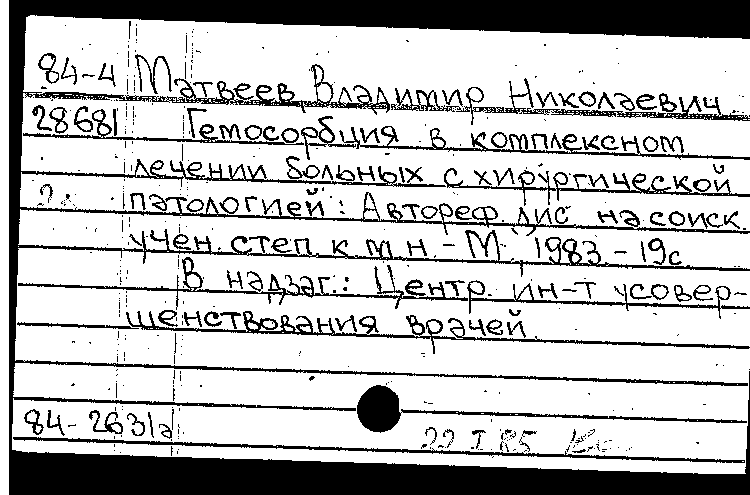 84-4 Матвеев Владимир Николаевич
28681 Гемосорбция в комплексном
лечении больных с хирургической
патологией: Автореф. дис. на соиск.
учен. степ. к.м.н. - М., 1983. - 19с
В надзаг.: Центр. ин-т усовер-
шенствования врачей.
84-2631а
22 I 85